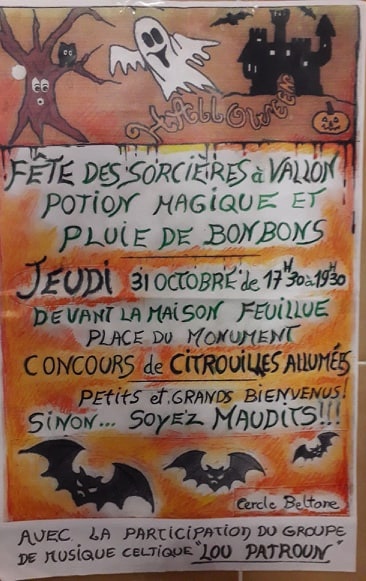 HALLOWEEN
FÊTE DES SORCIÈRES à VALLON
POTION MAGIQUE ET
PLUIE DE BONBONS
JEUDI 31 OCTOBRE de 17H30 à 19H30
DEVANT LA MAISON FEUILLUE
PLACE DU MONUMENT
CONCOURS de CITROUILLES ALLUMÉES
PETITS et GRANDS BIENVENUS!
SINON... SOYEZ MAUDITS!!!
Cercle Beltane
AVEC LA PARTICIPATION DU GROUPE
DE MUSIQUE CELTIQUE "LOU PATROUN"